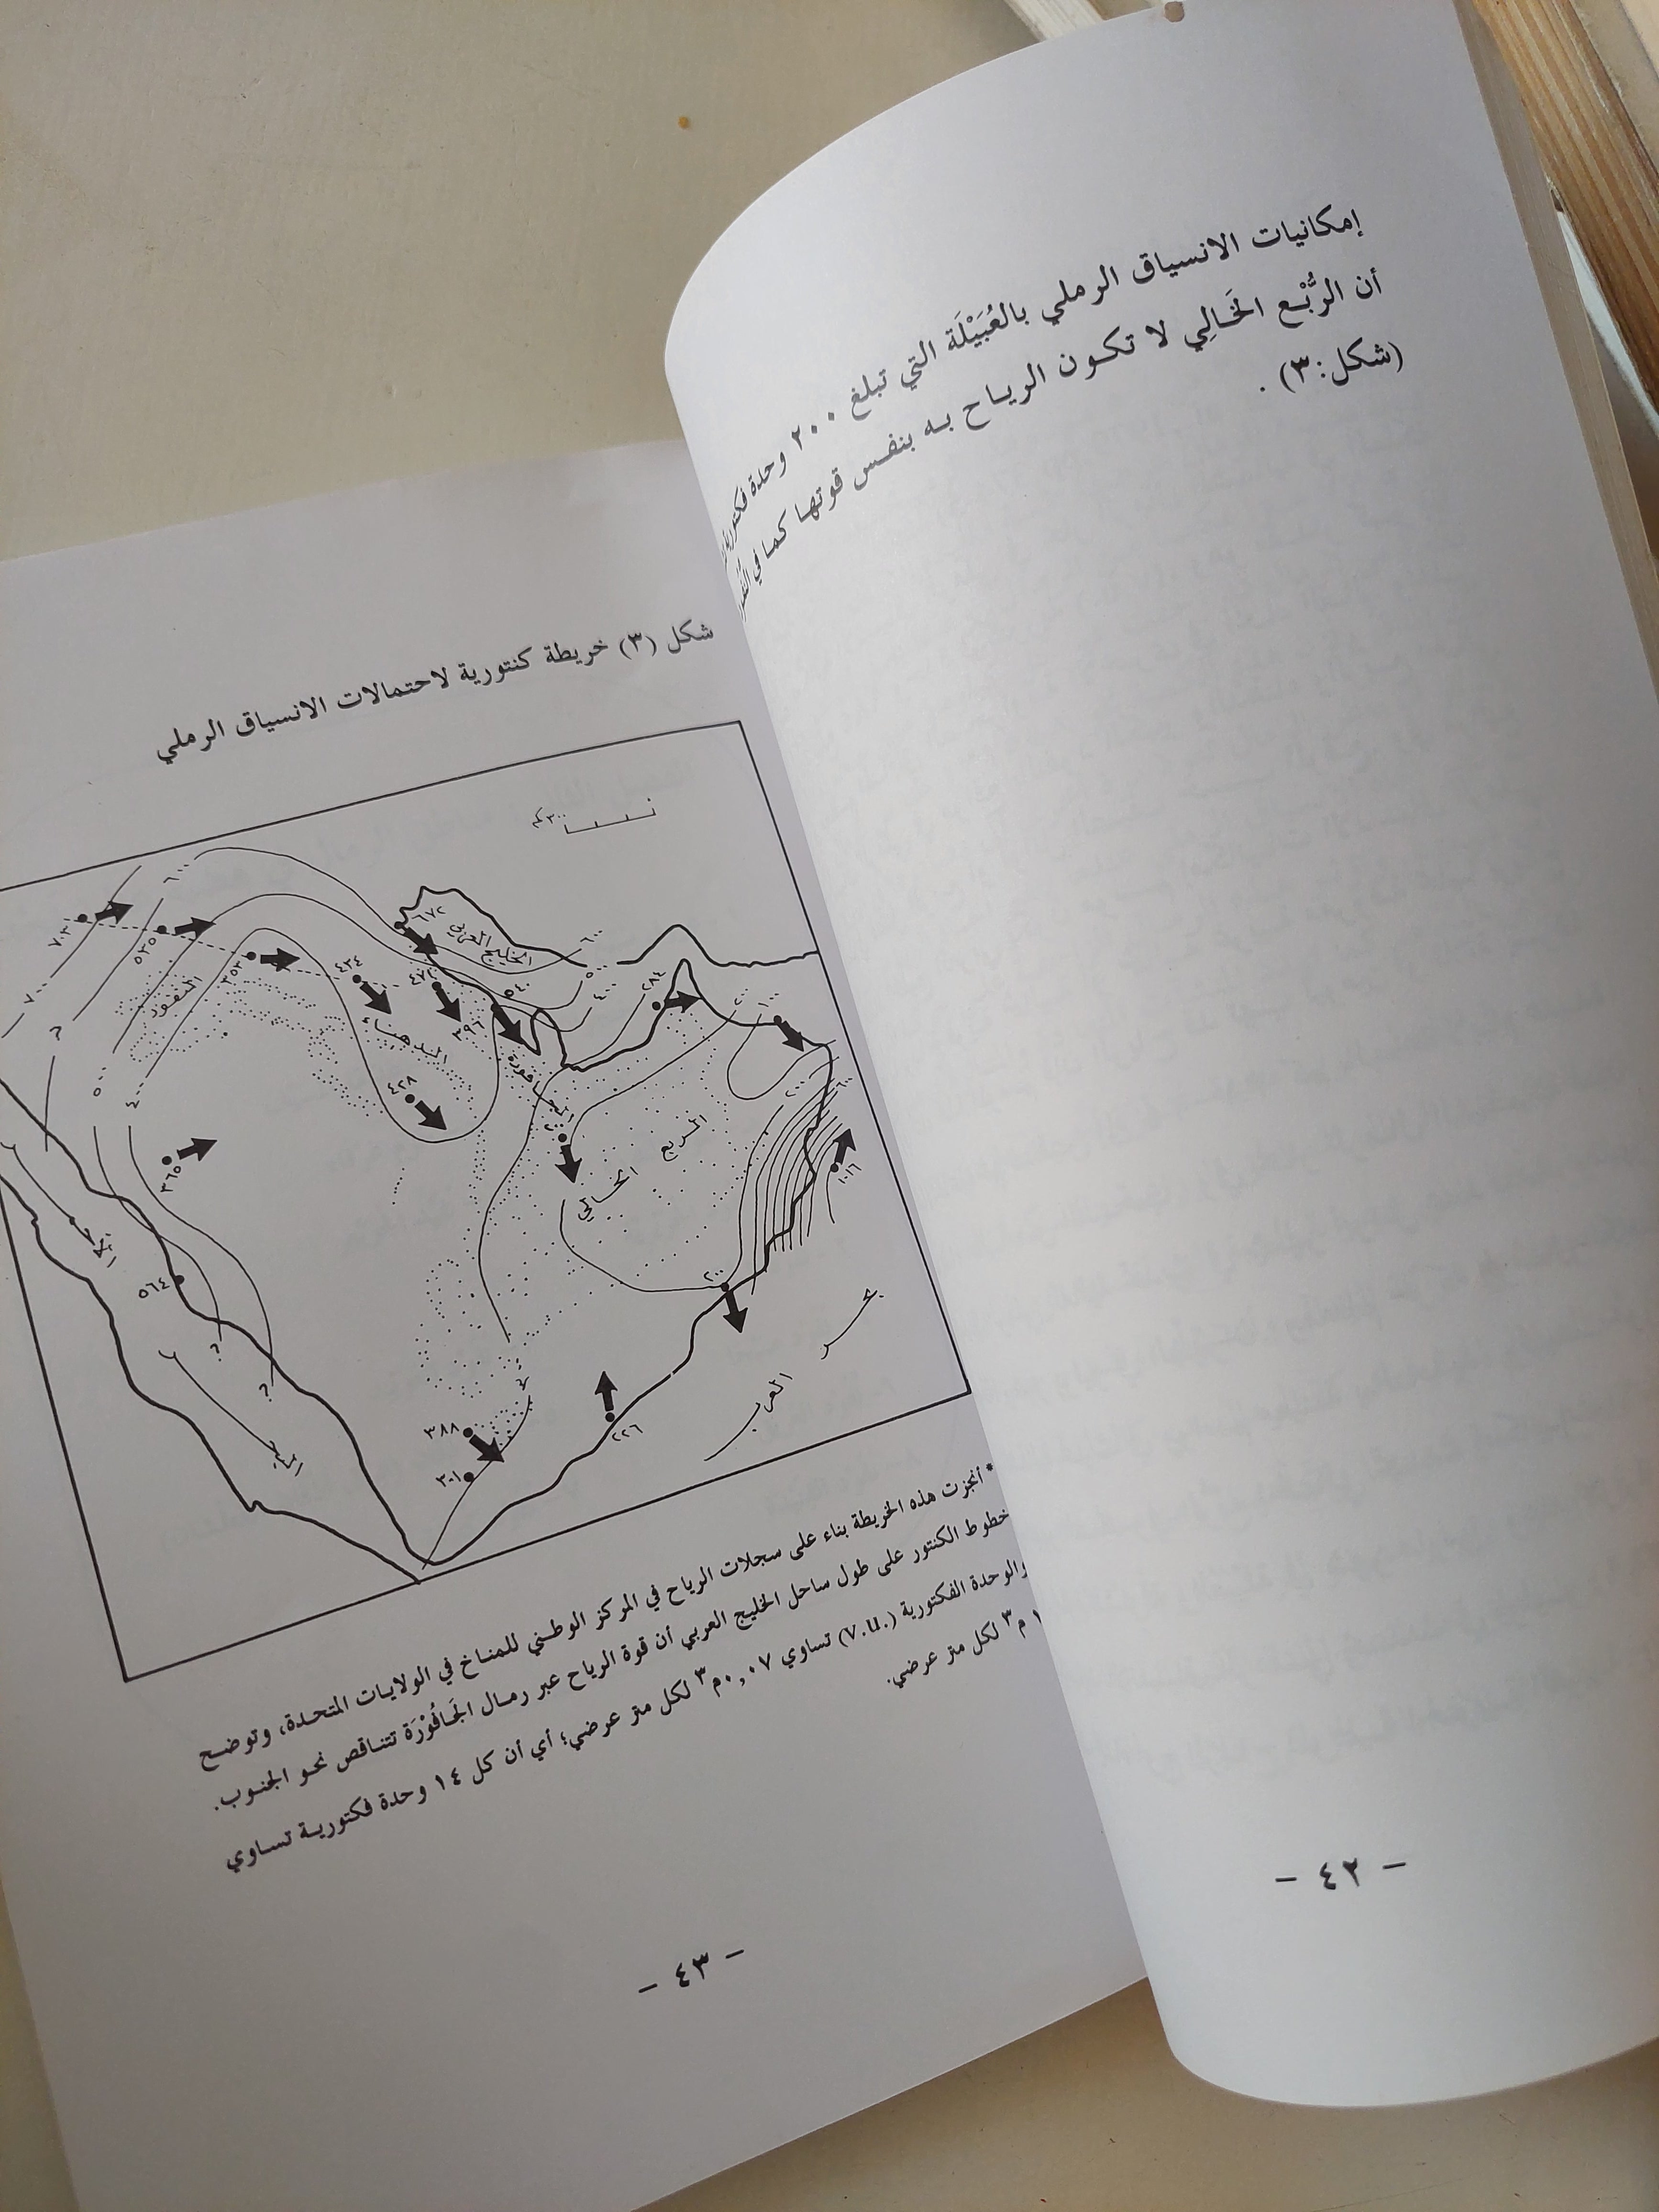 إمكانيات الانسياق الرملي بالعُبَيْلَة التي تبلغ ٢٠٠ وحدة
أن الرُّبْع الخَالِي لا تكون الرياح به بنفس قوتها كما في
(شكل:٣).
- ٤٢ -
شكل (٣) خريطة كنتورية لاحتمالات الانسياق الرملي
٣٠٠ كم
٦٠٠
٧٠٣
٥٣٥
٣٥٣
٤٣٤
٦٧٢
الخليج العربي
٦٠٠
٥٠٠
٤٠٠
٢٨٤
٢٠٠
١٠٠
النفود
الدهناء
٥٤٠
٣٩٦
الجافورة
٥٠٠
٤٠٠
٤٢٨
٢٠٠
الربع الخالي
٢٠٠
٦٠٠
١٠١٦
٣٦٥
البحر
٥٦٤
الأحمر
؟
؟
؟
٢٠٠
بحر العرب
٣٨٨
٣٠١
٢٢٦
* أنجزت هذه الخريطة بناء على سجلات الرياح في المركز الوطني للمناخ في الولايات المتحدة، وتوضح
خطوط الكنتور على طول ساحل الخليج العربي أن قوة الرياح عبر رمال الجَافُوْرَة تتناقص نحو الجنوب.
والوحدة الفكتورية (.v.u) تساوي ٠,٠٧م٣ لكل متر عرضي؛ أي أن كل ١٤ وحدة فكتورية تساوي
١ م٣ لكل متر عرضي.
- ٤٣ -